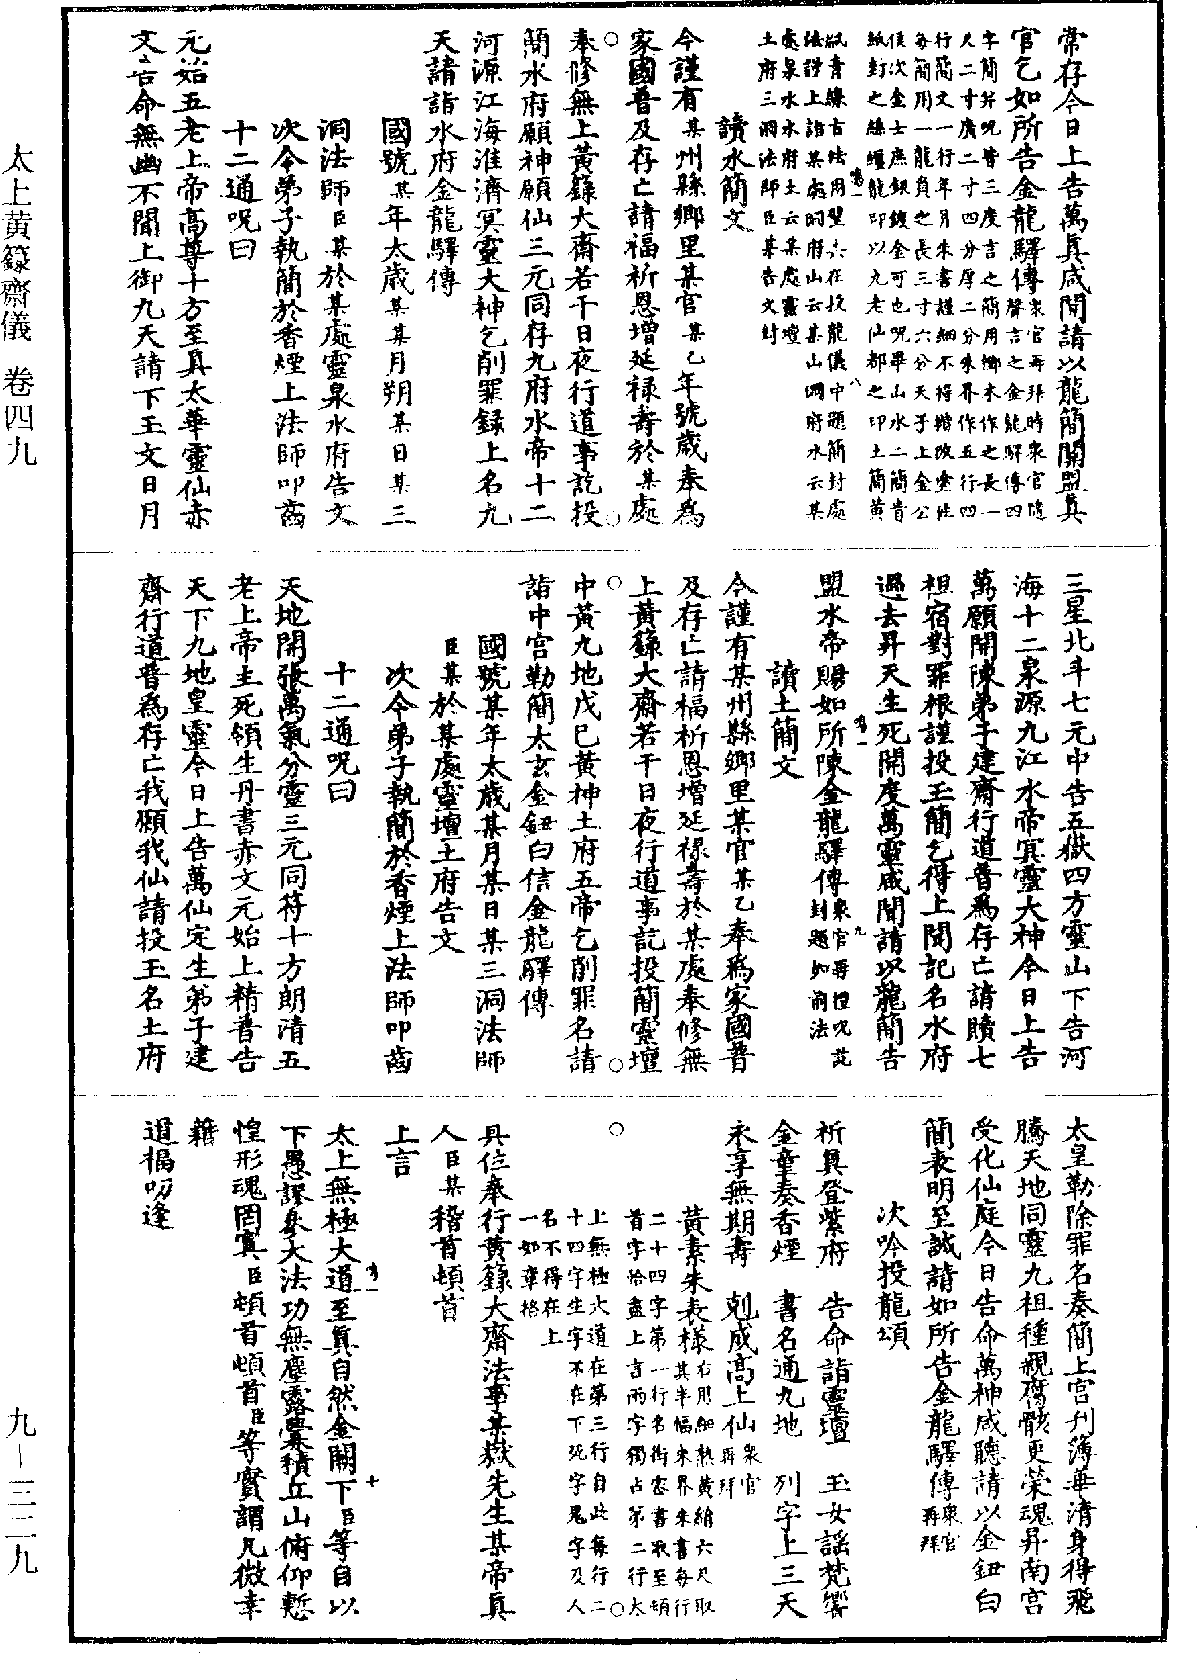 太上黃籙齋儀 卷四九
九-三二九
常存今日上告萬真咸聞請以龍簡關盟真
官乞如所告金龍驛傳衆官再拜時衆官隨聲言之金龍驛傳四
字簡并呪皆三度言之簡用槨木作之長一
尺二寸廣二寸四分厚二分朱界作五行四
行簡文一行年月朱書謹細不得楷改塗注
每簡用一龍負之長三寸六分天子上金公
侯次金士庶銀鍍金可也呪畢山水二簡青
紙封之絲纏龍印以九老仙都之印土簡黃
法謹上詣某處洞府山云某山洞府水云某
處泉水水府土云某處靈壇
土府三洞法師臣某告文封
讀水簡文
今謹有某州縣鄉里某官某乙年號歲奉爲
家國普及存亡請福祈恩增延祿壽於某處
奉修無上黃籙大齋若干日夜行道事訖投
簡水府願神願仙三元同存九府水帝十二
河源江海淮濟冥靈大神乞削罪錄上名九
天請詣水府金龍驛傳
國號某年太歲某某月朔某日某三
洞法師臣某於某處靈泉水府告文
次令弟子執簡於香煙上法師叩齒
十二通呪曰
元始五老上帝高尊十方至真太華靈仙赤
文告命無幽不聞上御九天請下玉文日月
三星北斗七元中告五嶽四方靈山下告河
海十二泉源九江水帝冥靈大神今日上告
萬願開陳弟子建齋行道普爲存亡請贖七
祖宿對罪根謹投玉簡乞得上聞記名水府
過去昇天生死開度萬靈咸聞請以龍簡告
盟水帝賜如所陳金龍驛傳衆官再禮呪訖封題如前法
讀土簡文
今謹有某州縣鄉里某官某乙奉爲家國普
及存亡請福祈恩增延祿壽於某處奉修無
上黃籙大齋若干日夜行道事訖投簡靈壇
中黃九地戊己黃神土府五帝乞削罪名請
詣中宮勒簡太玄金鈕自信金龍驛傳
國號某年太歲某月某日某三洞法師
臣某於某處靈壇土府告文
次令弟子執簡於香煙上法師叩齒
十二通呪曰
天地開張萬氣分靈三元同符十方朗清五
老上帝主死領生丹書赤文元始上精普告
天下九地皇靈今日上告萬仙定生弟子建
齋行道普爲存亡我願我仙請投玉名土府
太皇勒除罪名奏簡上宮刋薄華清身得飛
騰天地同靈九祖種親腐骸更榮魂昇南宮
受化仙庭今日告命萬神咸聽請以金鈕自
簡表明至誠請如所告金龍驛傳衆官再拜
次吟投龍頌
祈真登紫府　告命詣靈壇　玉女謡梵響
金童奏香煙　書名通九地　列字上三天
永享無期壽　剋成高上仙衆官再拜
黃素朱表樣右用細熟黃絹六尺取其半幅朱界朱書每行
二十四字第一行名銜密書取至頓
首字恰盡上言兩字獨占第二行太
上無極大道在第三行自此每行二
十四字生字不在下死字鬼字及人
名不得在上
一如章格
具位奉行黃籙大齋法事某嶽先生某帝真
人臣某稽首頓首
上言
太上無極大道至真自然金闕下臣等自以
下愚謬身大法功無塵露釁積丘山俯仰慙
惶形魂罔寘臣頓首頓首臣等實謂凡微幸
藉
道福叨逢